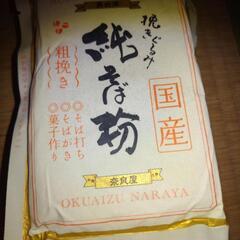 奈良屋
挽きぐるみ
純そば粉
国産
粗挽き
そば打ち
そばがき
菓子作り
奈良屋
OKUAIZU NARAYA